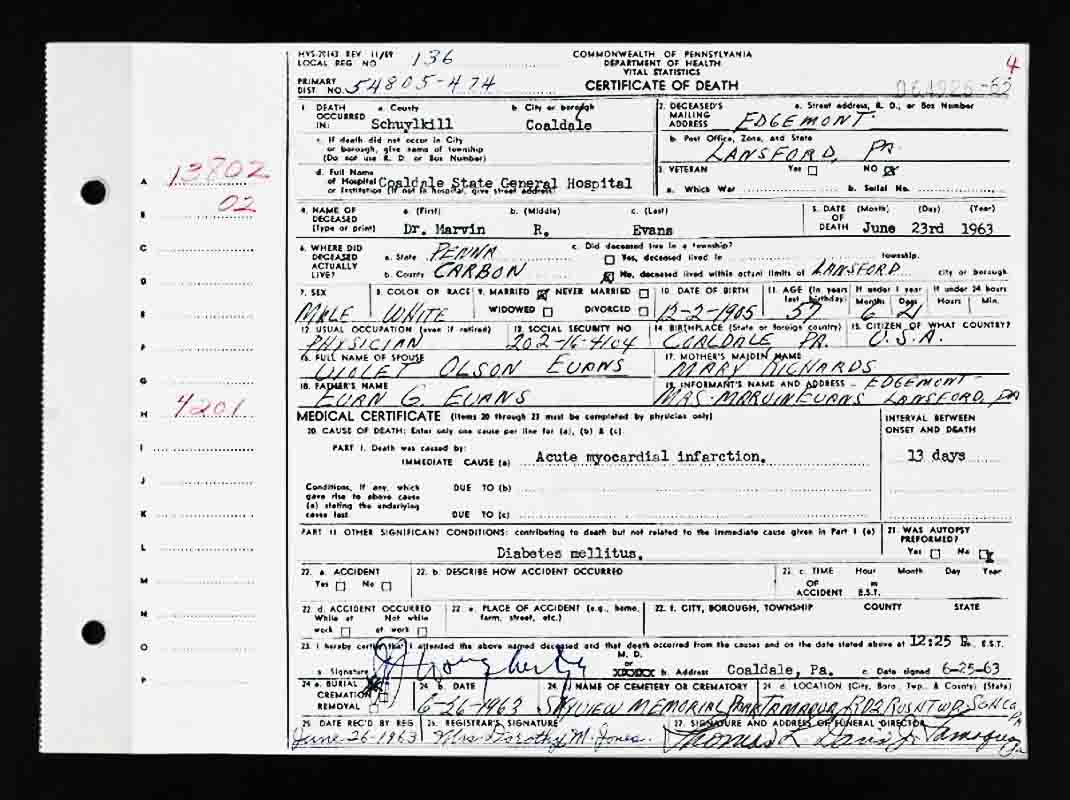 HVS-20143 REV 11/59
LOCAL REG NO 136
COMMONWEALTH OF PENNSYLVANIA
DEPARTMENT OF HEALTH
VITAL STATISTICS
4
PRIMARY
DIST. NO. 54805-474
CERTIFICATE OF DEATH
1. DEATH OCCURRED IN:
a. County
Schuylkill
b. City or borough
Coaldale
2. DECEASED'S MAILING ADDRESS
a. Street address, R. D., or Box Number
EDGEMONT
c. If death did not occur in City
or borough, give name of township
(Do not use R. D. or Box Number)
b. Post Office, Zone, and State
LANSFORD, PA.
d. Full Name
of Hospital
or Institution (If not in hospital, give street address)
Coaldale State General Hospital
3. VETERAN Yes NO
a. Which War b. Serial No.
4. NAME OF DECEASED
(Type or print)
a. (First) b. (Middle) c. (Last)
Dr. Marvin R. Evans
5. DATE OF DEATH
(Month) (Day) (Year)
June 23rd 1963
6. WHERE DID DECEASED ACTUALLY LIVE?
a. State PENNA
b. County CARBON
c. Did deceased live in a township?
Yes, deceased lived in township.
No, deceased lived within actual limits of LANSFORD city or borough.
7. SEX
MALE
8. COLOR OR RACE
WHITE
9. MARRIED NEVER MARRIED
WIDOWED DIVORCED
10 DATE OF BIRTH
12-2-1905
11. AGE (In years last birthday)
57
If under 1 year
Months Days
6 21
If under 24 hours
Hours Min.
12. USUAL OCCUPATION (even if retired)
PHYSICIAN
13. SOCIAL SECURITY NO
202-16-4104
14 BIRTHPLACE (State or foreign country)
COALDALE PA.
15. CITIZEN OF WHAT COUNTRY?
U.S.A.
16. FULL NAME OF SPOUSE
VIOLET OLSON EVANS
17. MOTHER'S MAIDEN NAME
MARY RICHARDS
18. FATHER'S NAME
EVAN G. EVANS
19. INFORMANT'S NAME AND ADDRESS - EDGEMONT
MRS. MARVIN EVANS LANSFORD, PA
MEDICAL CERTIFICATE (Items 20 through 23 must be completed by physician only)
INTERVAL BETWEEN
ONSET AND DEATH
20. CAUSE OF DEATH: Enter only one cause per line for (a), (b) & (c).
PART I. Death was caused by:
IMMEDIATE CAUSE (a) Acute myocardial infarction. 13 days
Conditions, if any, which
gave rise to above cause
(a) stating the underlying
cause last
DUE TO (b)
DUE TO (c)
PART II OTHER SIGNIFICANT CONDITIONS: contributing to death but not related to the immediate cause given in Part I (a)
Diabetes mellitus.
21 WAS AUTOPSY
PREFORMED?
Yes No
22. a. ACCIDENT
Yes No
22. b. DESCRIBE HOW ACCIDENT OCCURRED
22. c. TIME OF ACCIDENT
Hour Month Day Year
m
E.S.T.
22 d. ACCIDENT OCCURRED
While at work Not while at work
22. e. PLACE OF ACCIDENT (e.g., home,
farm, street, etc.)
22. f. CITY, BOROUGH, TOWNSHIP COUNTY STATE
23. I hereby certify that I attended the above named deceased and that death occurred from the causes and on the date stated above at 12:25 P. E.S.T.
a Signature
M. D.
or
b. Address Coaldale, Pa.
c Date signed 6-25-63
24 a. BURIAL
CREMATION
REMOVAL
24 b. DATE
6-26-1963
24. c. NAME OF CEMETERY OR CREMATORY
SKYVIEW MEMORIAL PARK
24 d. LOCATION (City, Boro, Twp., & County) (State)
TAMAQUA RD2 RUSH TWP. SCH CO. PA
25 DATE REC'D BY REG.
June 26-1963
26. REGISTRAR'S SIGNATURE
Mrs Dorothy M. Jones.
27. SIGNATURE AND ADDRESS OF FUNERAL DIRECTOR
Thomas L Davis Jr Tamaqua Pa
A 13802
B 02
C
D
E
F
G
H 4201
I
J
K
L
M
N
O
P